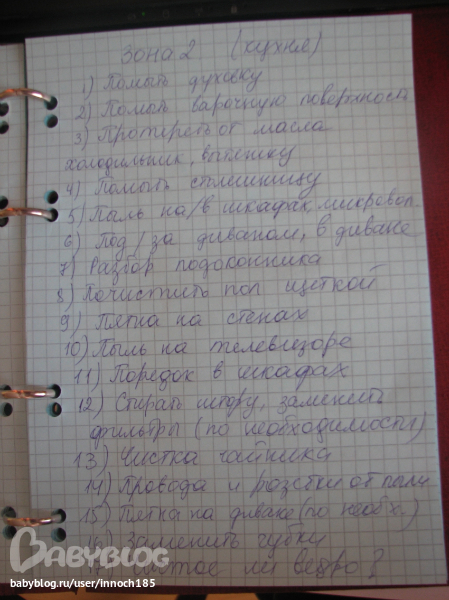 Зона 2 (кухня)
1) Помыть духовку
2) Помыть варочную поверхность
3) Протереть от масла
холодильник, вытяжку
4) Помыть столешницу
5) Пыль на/в шкафах, микровол.
6) Под/за диваном, в диване
7) Разбор подоконника
8) Почистить пол щеткой
9) Пятна на стенах
10) Пыль на телевизоре
11) Порядок в шкафах
12) Стирать штору, заменить
фильтры (по необходимости)
13) Чистка чайника
14) Провода и розетки от пыли
15) Пятна на диване (по необх.)
16) Заменить губки
17) Чистое ли ведро?
BABYBLOG
babyblog.ru/user/innoch185